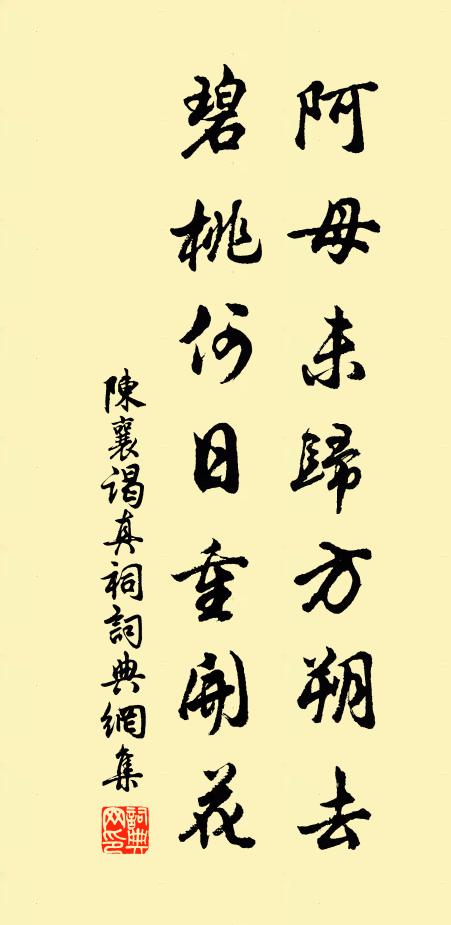 阿母未歸方朔去
碧桃何日重開花
陳襄謁真祠詞典網集
詞典网印